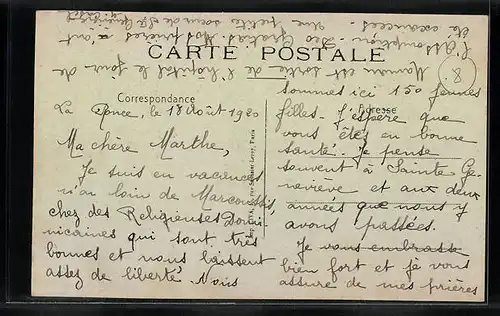 CARTE POSTALE
Correspondance
Adresse
8
La Ronce, le 18 Août 1920
Ma chère Marthe,
Je suis en vacances
non loin de Marcoussis,
chez des Religieuses Domi
nicaines qui sont très
bonnes et nous laissent
assez de liberté. Nous
sommes ici 150 jeunes
filles. J'espère que
vous êtes en bonne
santé. Je pense
souvent à Sainte Ge
nevieve et aux deux
années que nous y
avons passées.
Je vous embrasse
bien fort et je vous
assure de mes prières
Maman est sortie de l'hôpital le jour de
l'Assomption. Deo Gratias. Nos prières a'ont
été exaucées. Une petite sœur de